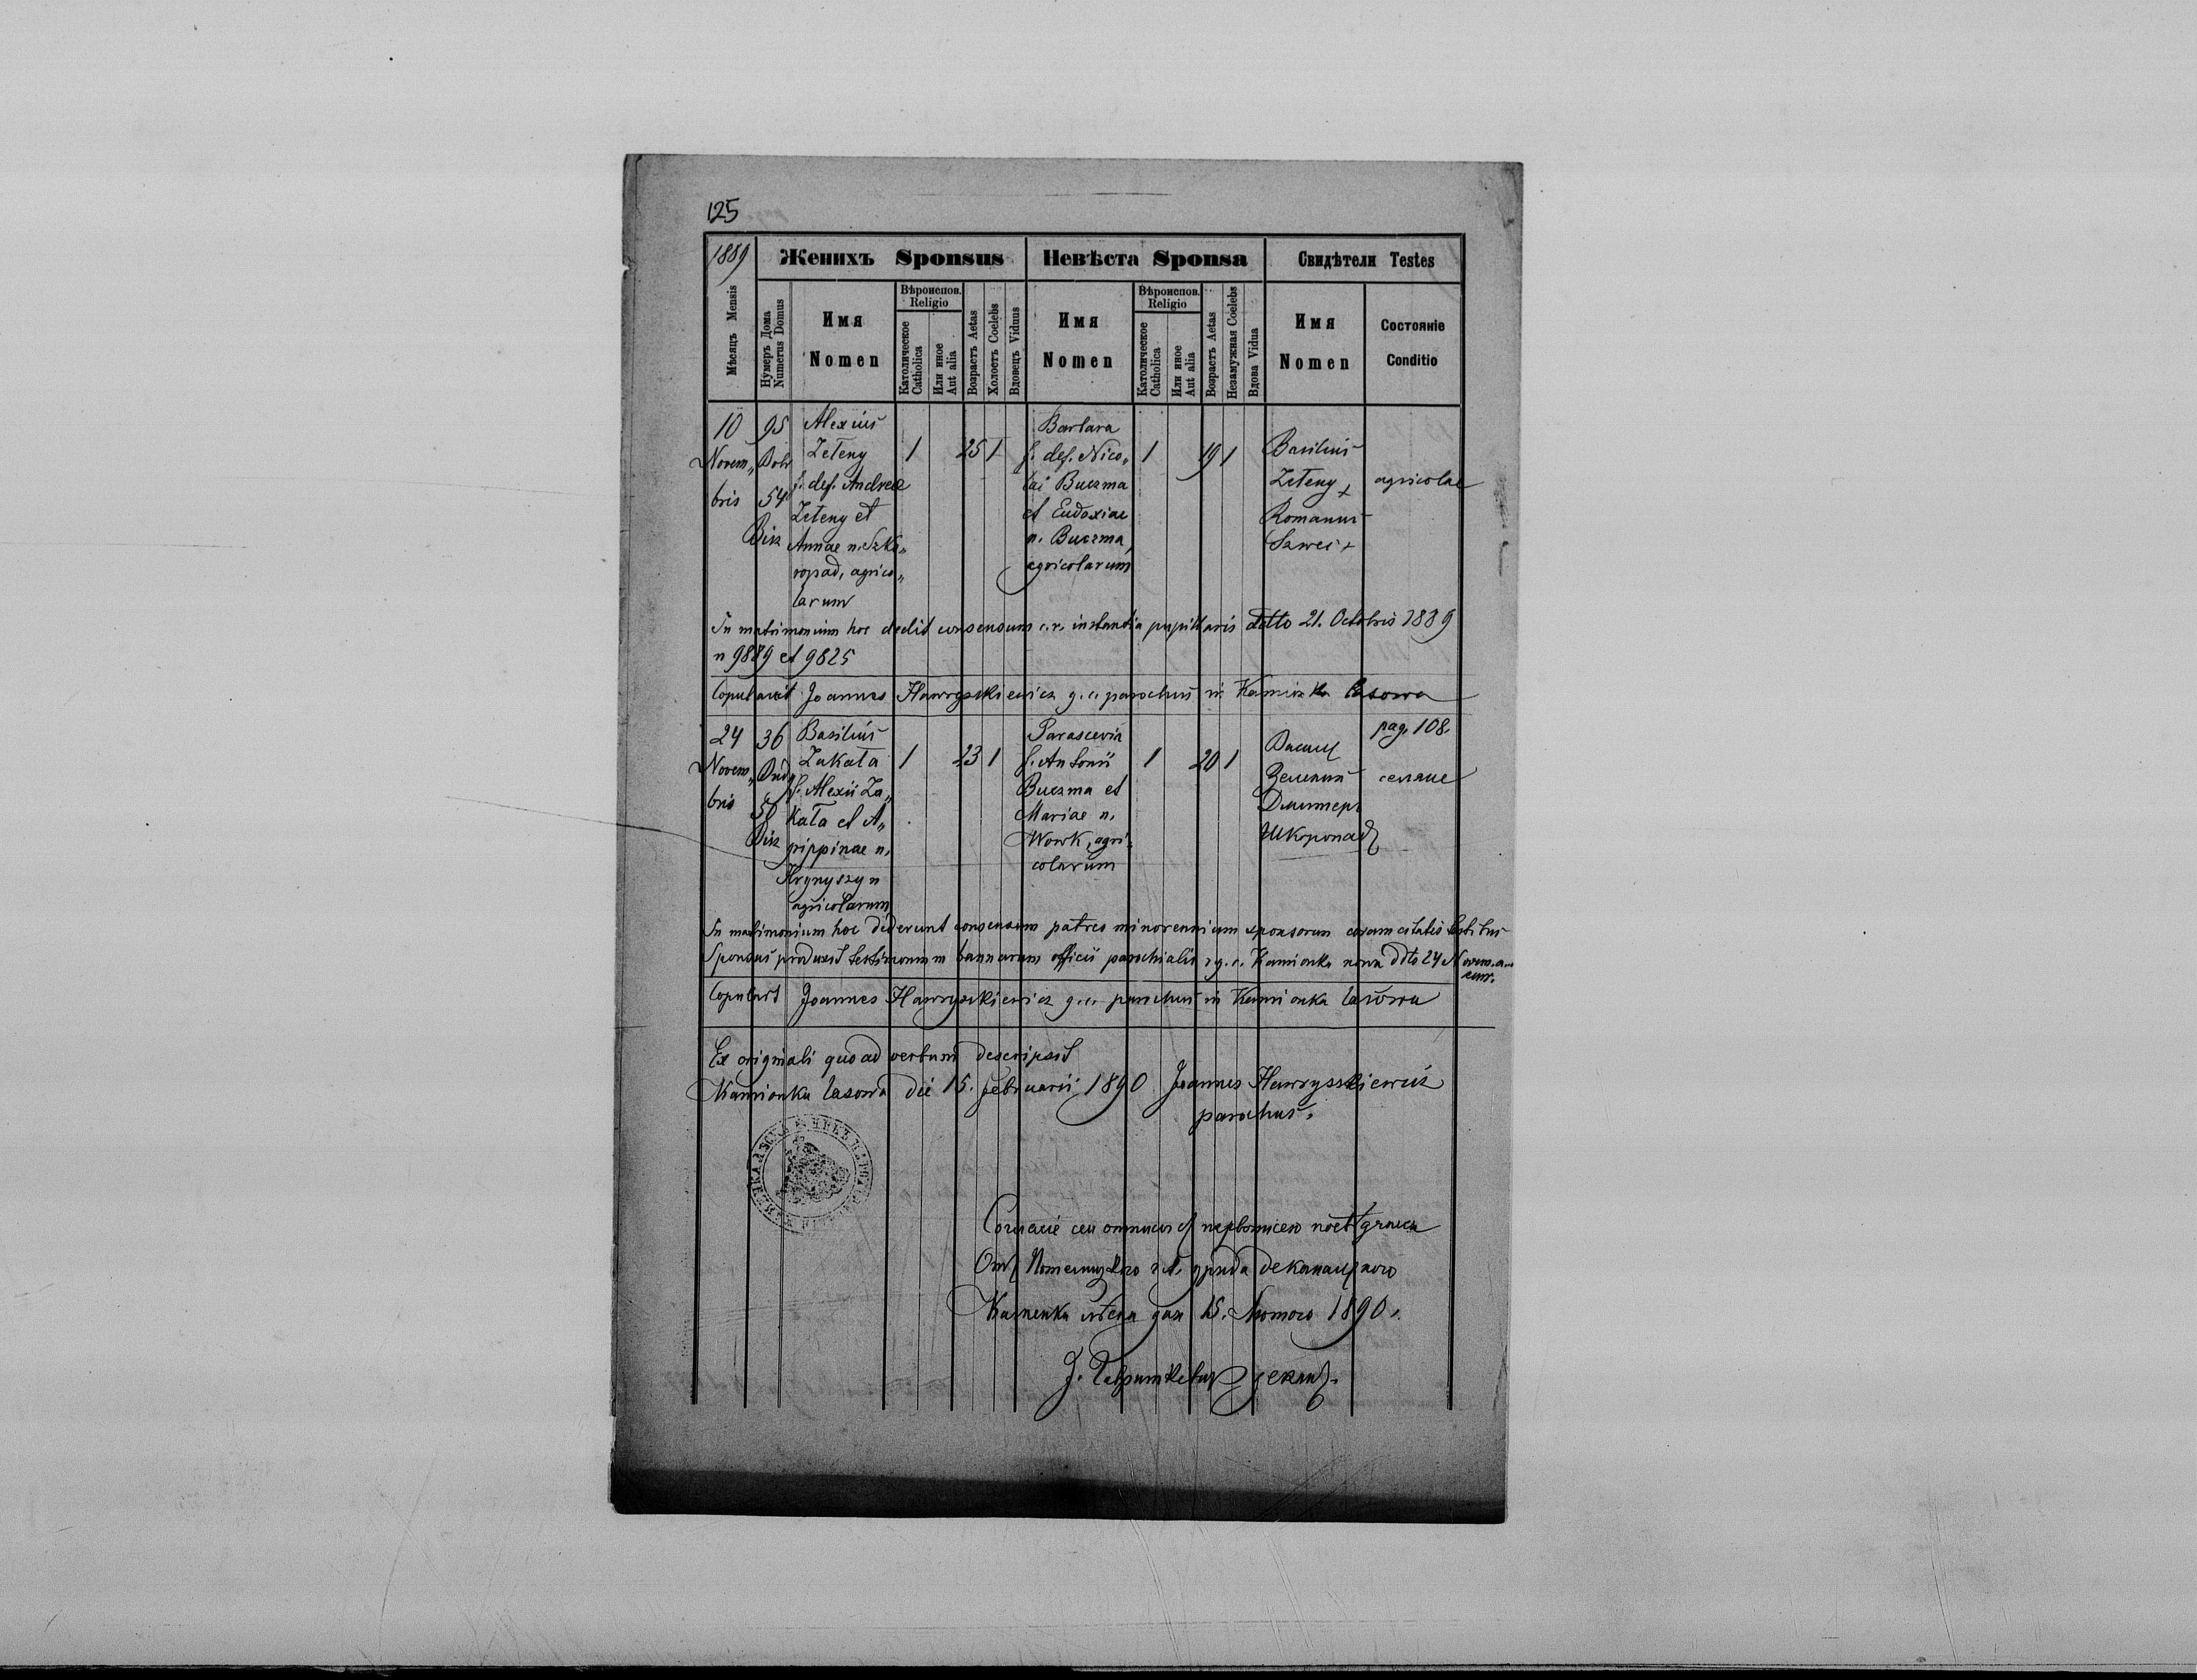 125
1889 Женихъ Sponsus Невѣста Sponsa Свидѣтели Testes
Мѣсяцъ Mensis
Нумеръ Дома Numerus Domus
Имя Nomen
Вѣроиспов. Religio
Католическое Catholica
Или иное Aut alia
Возрастъ Aetas
Холостъ Coelebs
Вдовецъ Viduus
Имя Nomen
Вѣроиспов. Religio
Католическое Catholica
Или иное Aut alia
Возрастъ Aetas
Незамужная Coelebs
Вдова Vidua
Имя Nomen
Состояніе Conditio
10
Novem„
bris
95
Dobr
54
Bisz
Alexius
Zeteny
f. def. Andreae
Zeteny et
Annae n. Szko„
ropad, agrico„
larum
1 25 1
Barbara
f. def. Nico„
lai Buczma
et Eudoxiae
n. Buczma,
agricolarum
1 19 1
Basilius
Zeteny +
Romanus
Szwec +
agricolae
In matrimonium hoc dedit consensum c.r. instantia pupillaris ddtto 21. Octobris 1889
n 9889 et 9825
Copulavit Joannes Hawryszkiewicz g.c. parochus in Kamionka lasowa
24
Novem„
bris
36
51
Bisz
Basilius
Zakała
f. Alexii Za„
kała et A„
grippinae n.
Hrynyszyn
agricolarum
1 23 1
Parascevia
f. Antonii
Buczma et
Mariae n.
Wowk, agri„
colarum
1 20 1
pag. 108.
Василь
Зелений
Дмитеръ
Шкропадъ
селяне
In matrimonium hoc dederunt consensum patres minorennium sponsorum coram citatis testibus
Sponsus produxit testimonium bannorum officii parochialis g.c. Kamionka nowa ddto 24 Novem. a.
curr.
Copulavit Joannes Hawryszkiewicz g.c. parochus in Kamionka lasowa
Ex originali quoad verbum descripsit
Kamionka lasowa die 15. februarii 1890 Joannes Hawryszkiewicz
parochus.
Согласіе сеи отписи съ первописею
Отъ г.к. уряда деканал
Каменка лѣсна дня 15. Лютого 1890.
І. Гавришкевичъ деканъ.